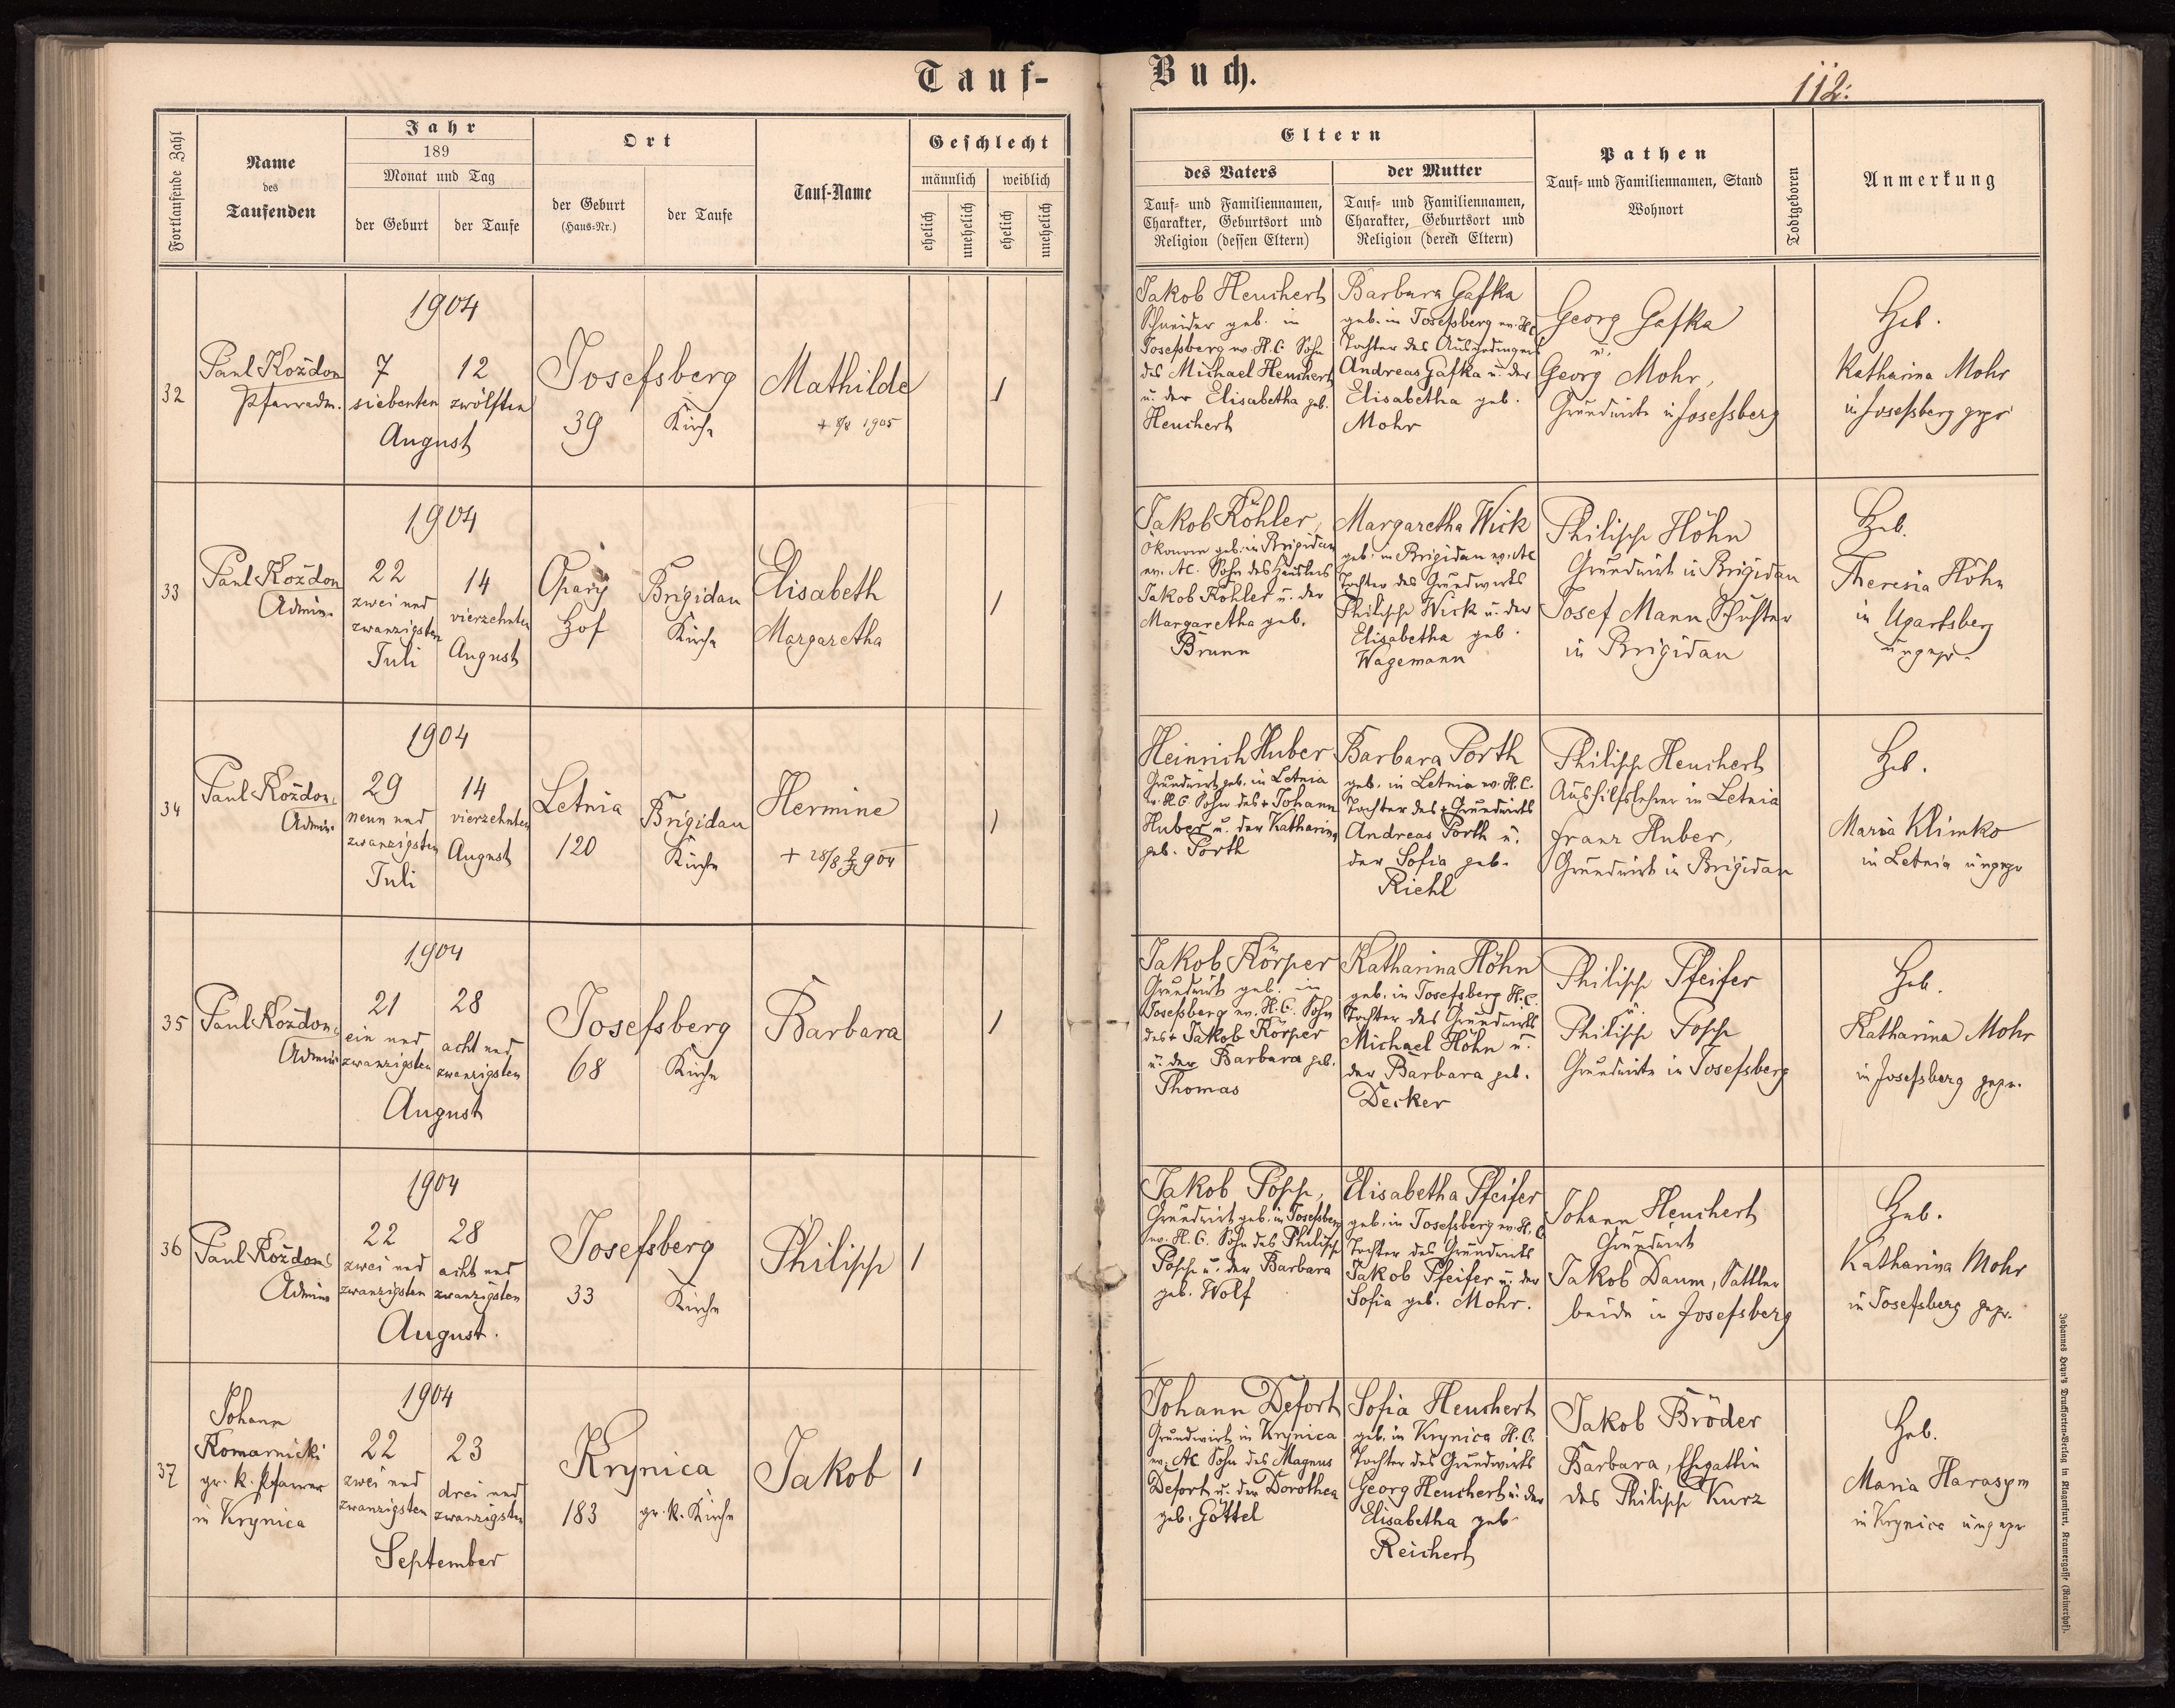 Tauf-
Buch.
112.
Fortlaufende Zahl
Name
des
Taufenden
Jahr
189
Monat und Tag
der Geburt
der Taufe
Ort
der Geburt
(Haus-Nr.)
der Taufe
Tauf-Name
Geschlecht
männlich
weiblich
ehelich
unehelich
ehelich
unehelich
Eltern
des Vaters
Tauf- und Familiennamen,
Charakter, Geburtsort und
Religion (dessen Eltern)
der Mutter
Tauf- und Familiennamen,
Charakter, Geburtsort und
Religion (deren Eltern)
Pathen
Tauf- und Familiennamen, Stand
Wohnort
Todtgeboren
Anmerkung
32
Paul Koždon
Pfarradm.
1904
7
siebenten
12
zwölften
August
Josefsberg
39
Kirche
Mathilde
+ 8/8 1905
1
Jakob Heuchert
Schneider geb. in
Josefsberg ev. H.C. Sohn
des Michael Heuchert
u. der Elisabetha geb.
Heuchert
Barbara Gafka
geb. in Josefsberg ev. H.C.
Tochter des Ausgedingers
Andreas Gafka u. der
Elisabetha geb.
Mohr
Georg Gafka
u.
Georg Mohr,
Grundwirte in Josefsberg
Heb.
Katharina Mohr
in Josefsberg gepr.
33
Paul Koždon
Admin.
1904
22
zwei und
zwanzigsten
Juli
14
vierzehnten
August
Opary
Hof
Brigidau
Kirche
Elisabeth
Margaretha
1
Jakob Köhler,
Ökonom geb. in Brigidau
ev. AC. Sohn des Häuslers
Jakob Köhler u. der
Margaretha geb.
Brunn
Margaretha Wick
geb. in Brigidau ev. AC
Tochter des Grundwirts
Philipp Wick u. der
Elisabetha geb.
Wagemann
Philipp Höhn
Grundwirt in Brigidau
Josef Mann Schuster
in Brigidau
Heb.
Theresia Höhn
in Ugartsberg
ungepr.
34
Paul Koždon,
Admin.
1904
29
neun und
zwanzigsten
Juli
14
vierzehnten
August
Letnia
120
Brigidau
Kirche
Hermine
+ 28/8 904
1
Heinrich Huber
Grundwirt geb. in Letnia
ev. H.C. Sohn des + Johann
Huber u. der Katharina
geb. Porth
Barbara Porth
geb. in Letnia ev. H.C.
Tochter des + Grundwirts
Andreas Porth u.
der Sofia geb.
Riehl
Philipp Heuchert
Aushilfslehrer in Letnia
Franz Huber,
Grundwirt in Brigidau
Heb.
Maria Klimko
in Letnia ungepr
35
Paul Koždon,
Admin
1904
21
ein und
zwanzigsten
28
acht und
zwanzigsten
August
Josefsberg
68
Kirche
Barbara
1
Jakob Körper
Grundwirt geb. in
Josefsberg ev. H.C. Sohn
des + Jakob Körper
u. der Barbara geb.
Thomas
Katharina Höhn
geb. in Josefsberg H.C.
Tochter des Grundwirts
Michael Höhn u.
der Barbara geb.
Decker
Philipp Pfeifer
u.
Philipp Popp
Grundwirte in Josefsberg
Heb.
Katharina Mohr
in Josefsberg gepr.
36
Paul Koždon
Admin
1904
22
zwei und
zwanzigsten
28
acht und
zwanzigsten
August.
Josefsberg
33
Kirche
Philipp
1
Jakob Popp,
Grundwirt geb. in Josefsberg
ev. H.C. Sohn des Philipp
Popp u. der Barbara
geb. Wolf
Elisabetha Pfeifer
geb. in Josefsberg ev. H.C
Tochter des Grundwirts
Jakob Pfeifer u. der
Sofia geb. Mohr.
Johann Heuchert
Grundwirt
Jakob Daum, Sattler
beide in Josefsberg
Heb.
Katharina Mohr
in Josefsberg gepr.
37
Johann
Komarnicki
gr. k. Pfarrer
in Krynica
1904
22
zwei und
zwanzigsten
23
drei und
zwanzigsten
September
Krynica
183
gr. k. Kirche
Jakob
1
Johann Defort
Grundwirt in Krynica
ev. AC Sohn des Magnus
Defort u. der Dorothea
geb. Göttel
Sofia Heuchert
geb. in Krynica H.C.
Tochter des Grundwirts
Georg Heuchert u. der
Elisabetha geb.
Reichert
Jakob Bröder
Barbara, Ehegattin
des Philipp Kurz
Heb.
Maria Harasym
in Krynica ungepr
Johannes Heyn's Drucksorten-Verlag in Klagenfurt, Kramergasse (Rainerhof).